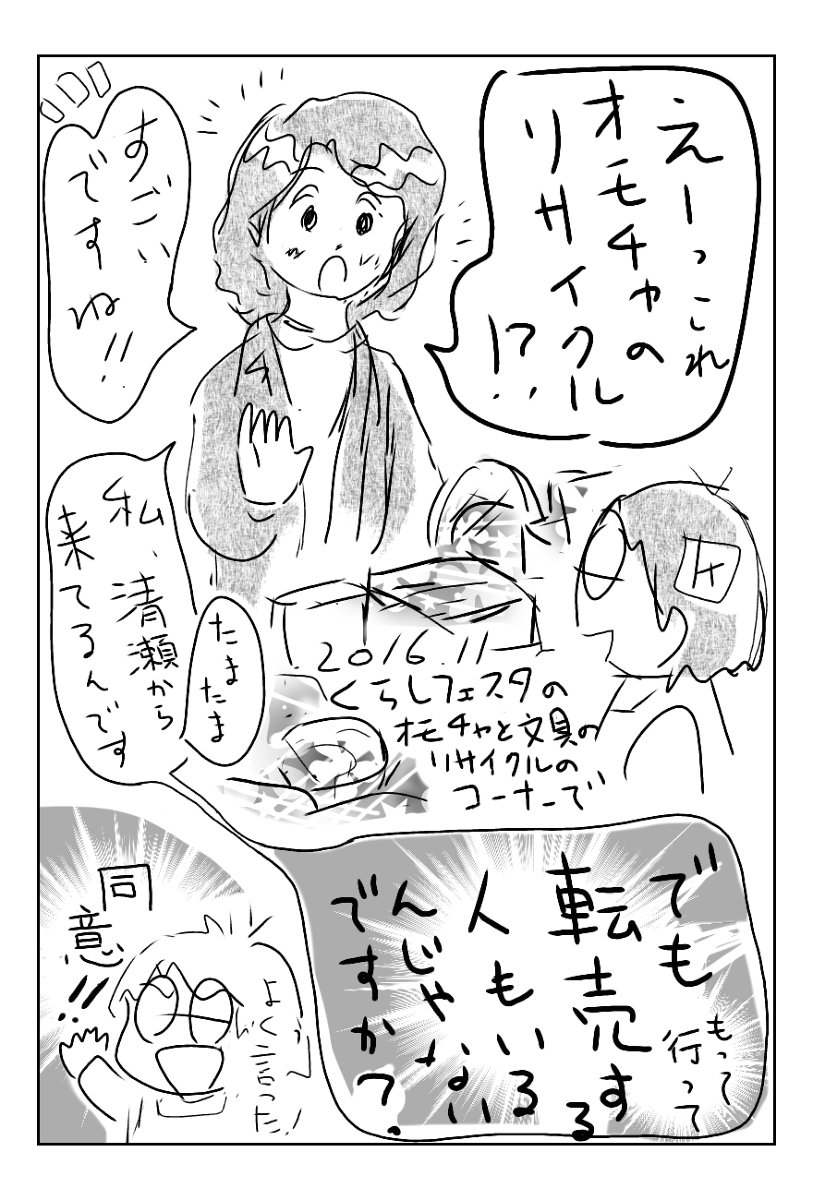 えーっこれ
オモチャの
リサイクル
!?
すごい
ですね!!
私、清瀬から
来てるんです
たまたま
2016.11
くらしフェスタの
オモチャと文具の
リサイクルの
コーナーで
でも
もって
行って
転売する
人もいる
んじゃない
ですか?
同意!!
よくぞ
言った!